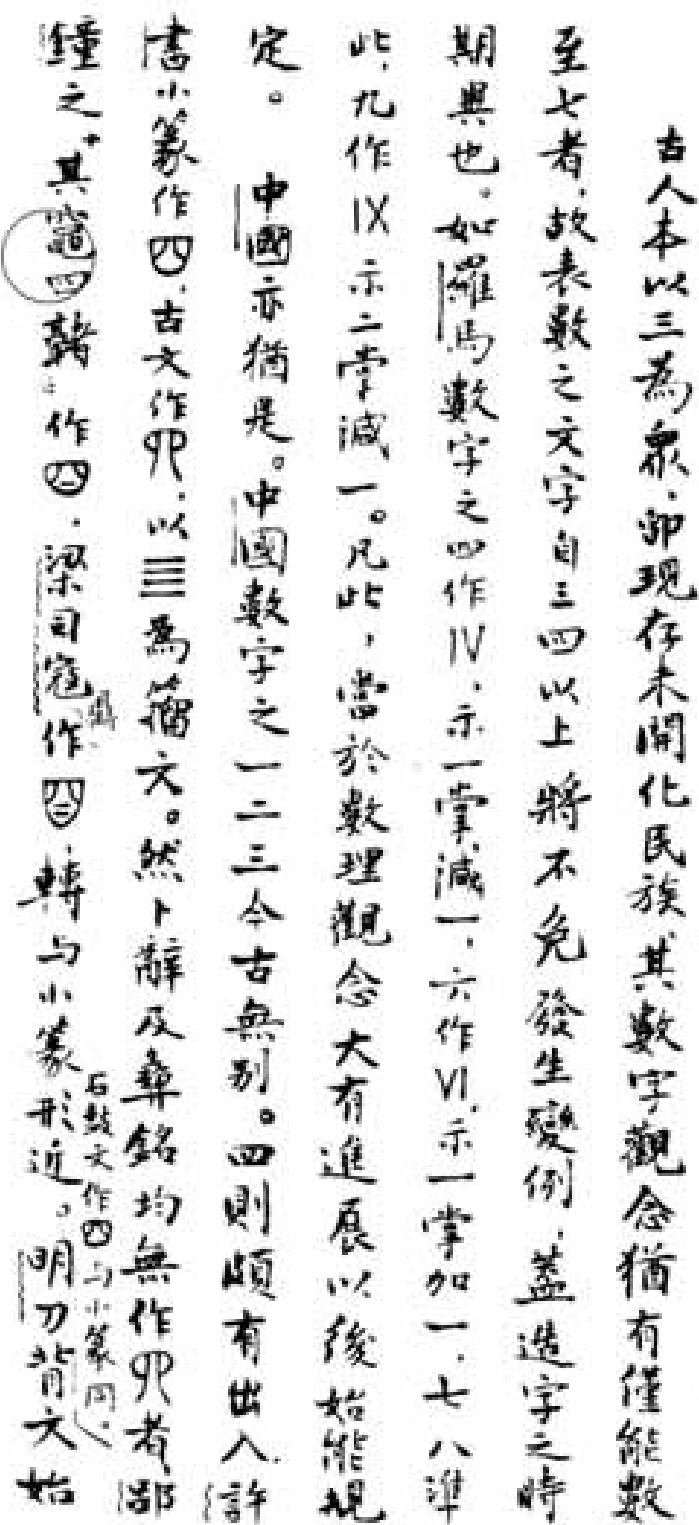 古人本以三為衆，卽現存未開化民族，其數字觀念猶有僅能數
至七者，故表數之文字自三四以上將不免發生變例，蓋造字之時
期異也。如羅馬數字之四作IV，示一掌減一，六作VI，示一掌加一，七八準
此，九作IX示二掌減一。凡此，當於數理觀念大有進展以後始能規
定。 中國亦猶是。中國數字之一二三今古無别。四則頗有出入，許
書小篆作四，古文作𦉭，以亖為籀文。然卜辭及彝銘均無作𦉭者，郘
鐘之“其竈四䜴”作四，梁司寇鼎作四，轉与小篆形近。石鼓文作四与小篆同。明刀背文始